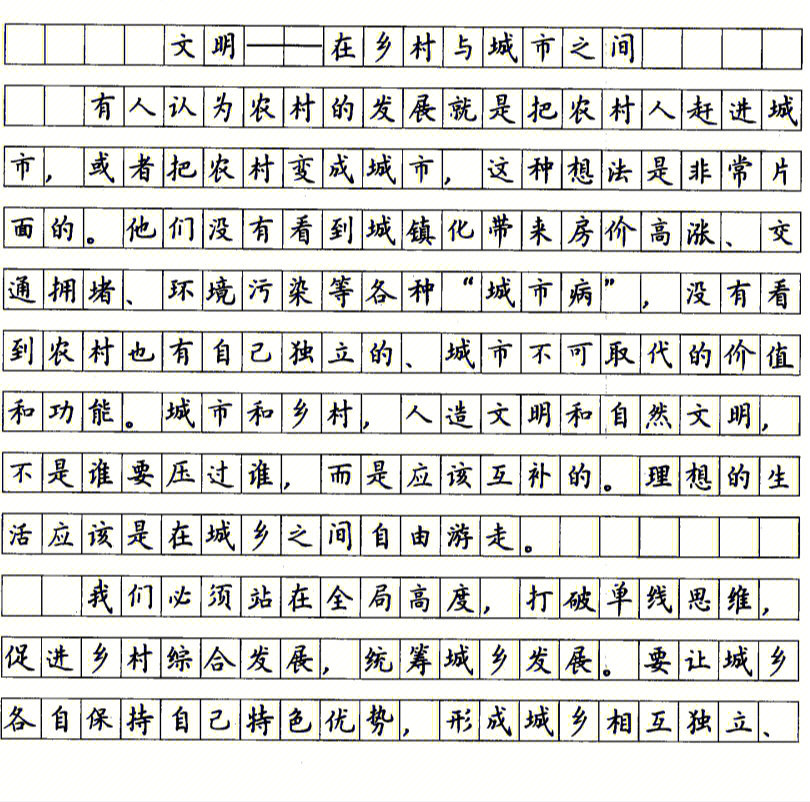 文明——在乡村与城市之间
有人认为农村的发展就是把农村人赶进城
市，或者把农村变成城市，这种想法是非常片
面的。他们没有看到城镇化带来房价高涨、交
通拥堵、环境污染等各种“城市病”，没有看
到农村也有自己独立的、城市不可取代的价值
和功能。城市和乡村，人造文明和自然文明，
不是谁要压过谁，而是应该互补的。理想的生
活应该是在城乡之间自由游走。
我们必须站在全局高度，打破单线思维，
促进乡村综合发展，统筹城乡发展。要让城乡
各自保持自己特色优势，形成城乡相互独立、